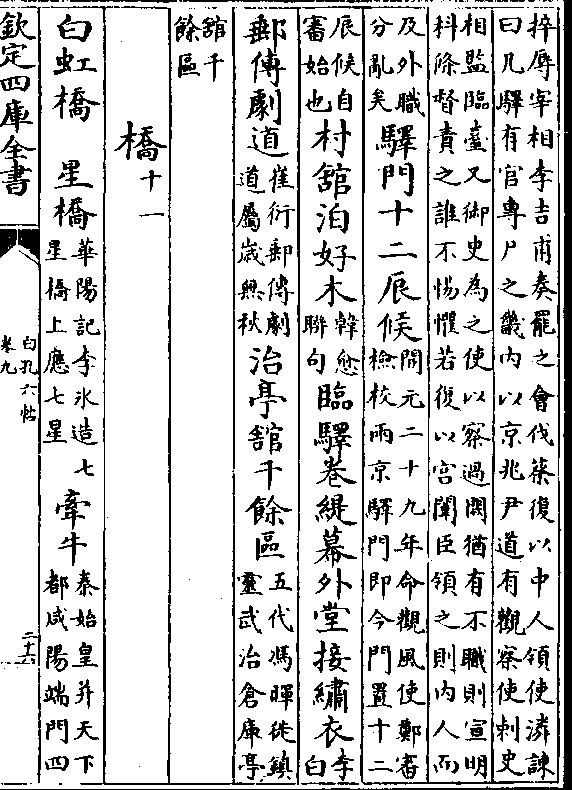 捽辱宰相李吉甫奏罷之會伐蔡復以中人領使潾諫
曰凡驛有官專尸之畿内以京兆尹道有觀察使刺史
相監臨臺又御史為之使以察過闕猶有不職則宣明
科條督責之誰不惕懼若復以宫闈臣領之則内人而
及外職
分亂矣
驛門十二辰候
開元二十九年命觀風使鄭審
檢校兩京驛門即今門置十二
辰候自
審始也
村舘泊好木
韓愈
聯句
臨驛卷緹幕外堂接繡衣
李
白
郵傳劇道
崔衍郵傳劇
道屬歲無秋
治亭舘千餘區
五代馮暉徙鎮
靈武治倉庫亭
舘千
餘區
橋十一
白虹橋 星橋
華陽記李氷造七
星橋上應七星
牽牛
秦始皇并天下
都咸陽端門四
欽定四庫全書
白孔六帖
卷九
二十六